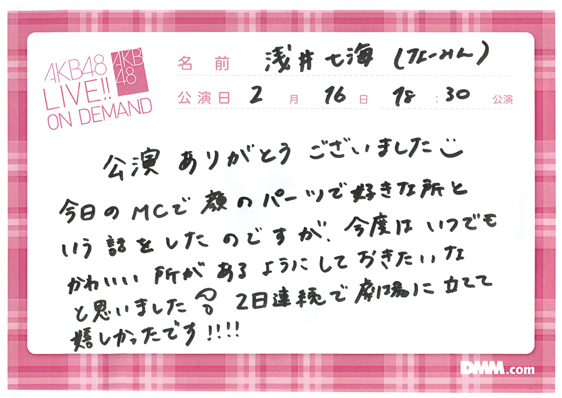 AKB48
LIVE!!
ON DEMAND
AKB
48
名前 浅井七海 (なーみん)
公演日 2月 16日 18:30 公演
公演 ありがとう ございました
今日のMCで 顔のパーツで好きな所と
いう 話をした のですが、今度は いつでも
かわいい 所が あるようにしておきたいな
と思いました 2日連続で劇場に立てて
嬉しかったです!!!!
DMM.com